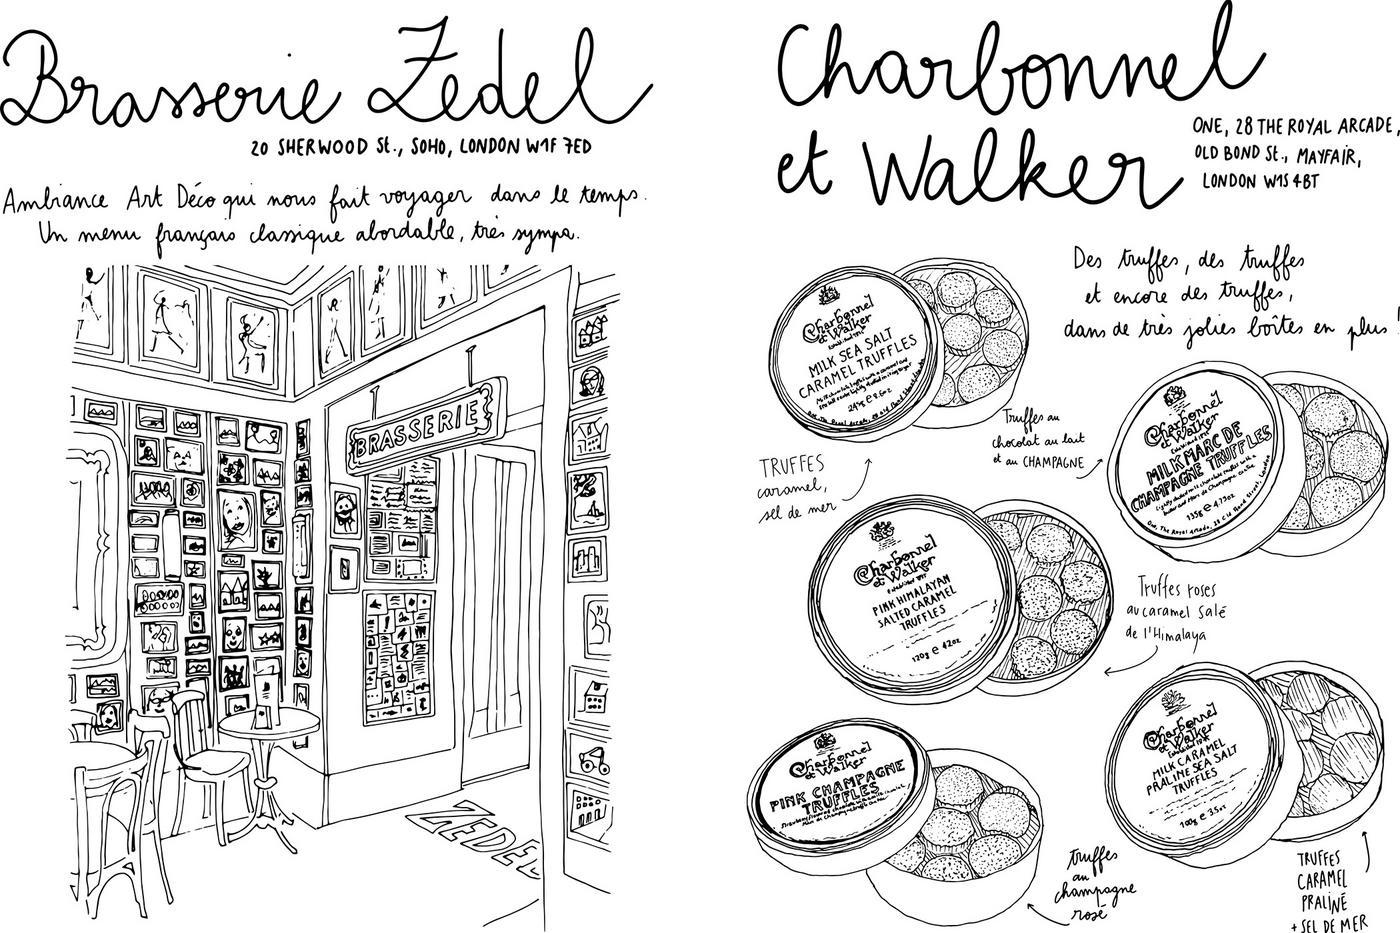 Brasserie Zedel
20 SHERWOOD St., SOHO, LONDON W1F 7ED
Ambiance Art Déco qui nous fait voyager dans le temps.
Un menu français classique abordable, très sympa.
BRASSERIE
ZEDEL
Charbonnel
et Walker
ONE, 28 THE ROYAL ARCADE,
OLD BOND St., MAYFAIR,
LONDON W1S 4BT
Des truffes, des truffes
et encore des truffes,
dans de très jolies boîtes en plus !
Charbonnel
et Walker
MILK SEA SALT
CARAMEL TRUFFLES
TRUFFES
caramel,
sel de mer
Truffes au
chocolat au lait
et au CHAMPAGNE
Charbonnel
et Walker
MILK MARC DE
CHAMPAGNE TRUFFLES
135g e 4.73oz
One, The Royal Arcade, 28 Old Bond Street, London
Charbonnel
et Walker
PINK HIMALAYAN
SALTED CARAMEL
TRUFFLES
120g e 42oz
Truffes roses
au caramel salé
de l'Himalaya
Charbonnel
et Walker
PINK CHAMPAGNE
TRUFFLES
truffes
au
champagne
rosé
Charbonnel
et Walker
MILK CARAMEL
PRALINE SEA SALT
TRUFFLES
100g e 3.5oz
TRUFFES
CARAMEL
PRALINÉ
+ SEL DE MER